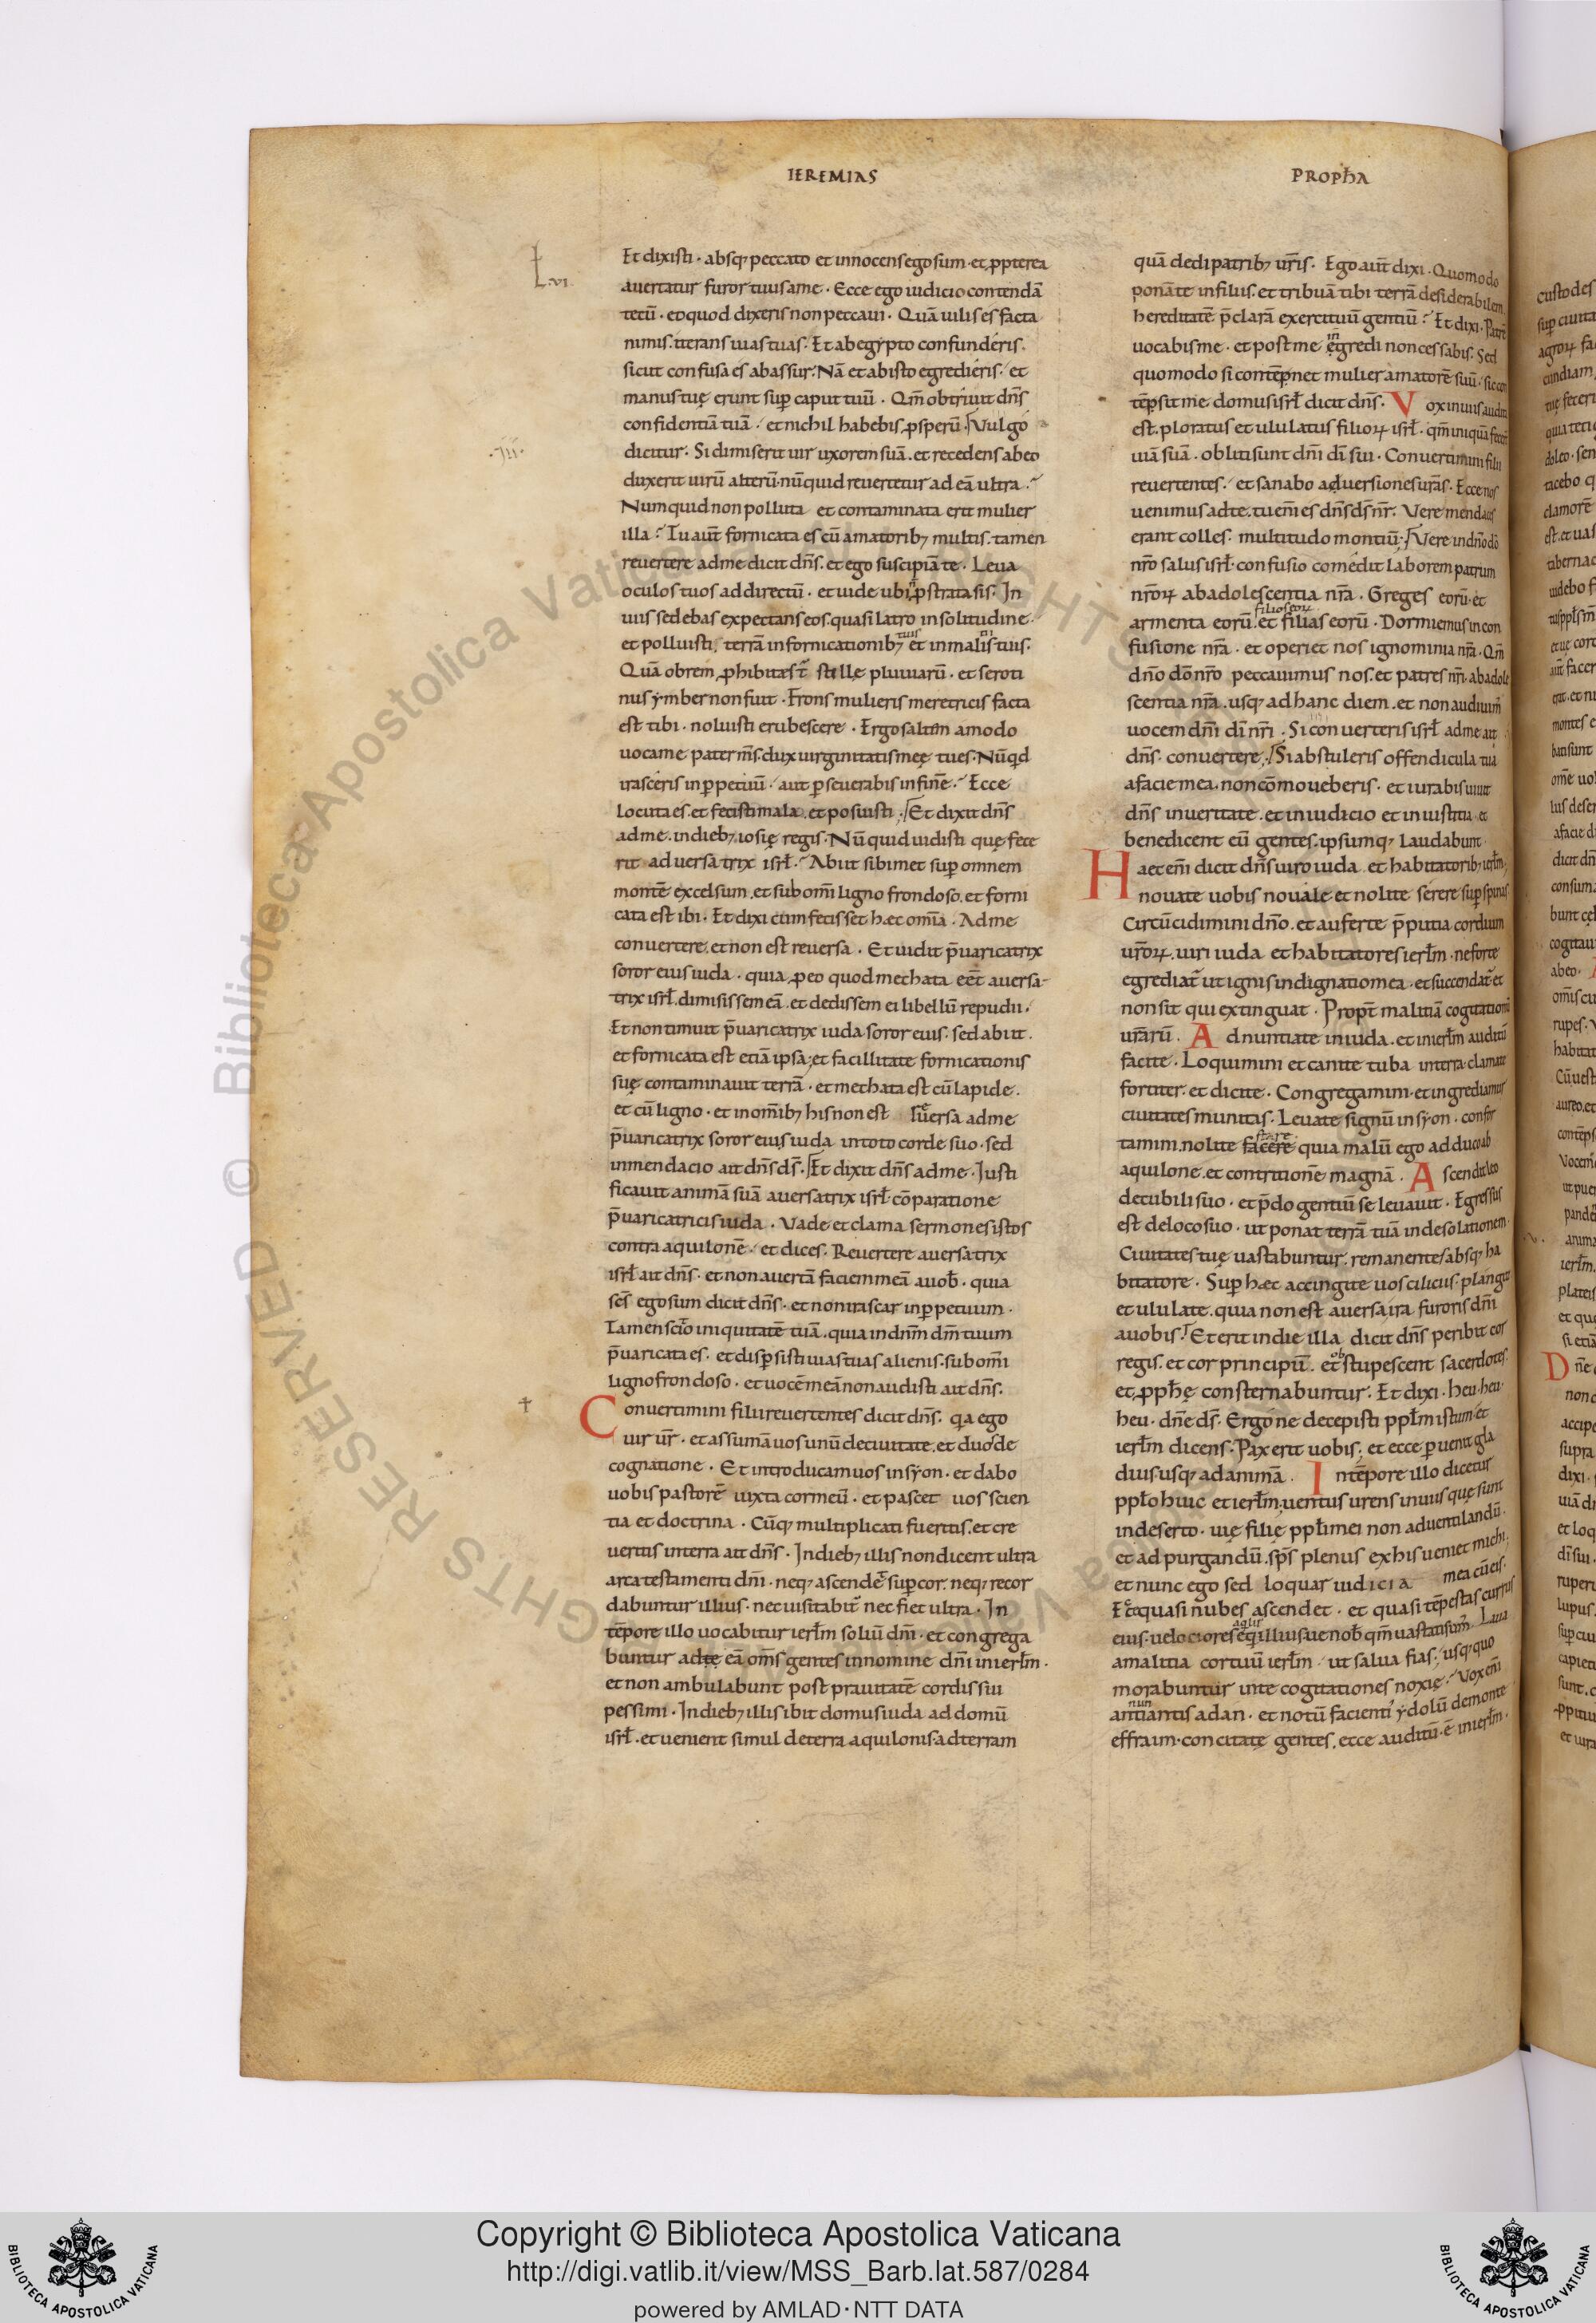 IEREMIAS
PROPHA
L.VI.
Et dixisti · absq; peccato et innocens ego sum · et ꝓpterea
auertatur furor tuus ame · Ecce ego iudicio contendā
tecū · eo quod dixeris non peccaui · Quā uilis es facta
nimis. iterans uias tuas · Et ab egypto confunderis.
sicut confusa es ab assur · Nā et ab isto egredieris · et
·III·
manus tuę erunt suꝑ caput tuū · Qm̄ obtriuit dn̄s
confidentiā tuā · et nichil habebis ꝓsperū · Vulgo
dicitur · Si dimiserit uir uxorem suā · et recedens ab eo
duxerit uirū alterū · nūquid reuertetur ad eā ultra ·
Numquid non polluta et contaminata erit mulier
illa · Tu aut̄ fornicata es cū amatorib; multis. tamen
reuertere ad me dicit dn̄s. et ego suscipiā te · Leua
oculos tuos ad directū · et uide ubi n ꝓstrata sis · In
uiis sedebas expectans eos. quasi latro in solitudine ·
et polluisti terrā in fornicationib; tuis et in malis tuis ·
Quā obrem ꝓhibitę st̄ stillę pluuiarū · et seroti
nus ymber non fuit · Frons mulieris meretricis facta
est tibi · noluisti erubescere · Ergo saltim amodo
uoca me pater m̄s. dux uirginitatis meę tu es · Nūqd
irasceris in ꝑpetuū · aut ꝑseuerabis in finē · Ecce
locuta es. et fecisti mala. et posuisti · Et dixit dn̄s
ad me. in dieb; iosię regis · Nūquid uidisti quę fece
rit aduersatrix isrł · Abiit sibimet suꝑ omnem
montē excelsum. et sub om̄i ligno frondoso. et forni
cata est ibi · Et dixi cum fecisset hæc om̄ia · Ad me
conuertere. et non est reuersa · Et uidit p̄uaricatrix
soror eius iuda · quia ꝓ eo quod mechata eēt auersa
trix isrł. dimisissem eā. et dedissem ei libellū repudii ·
Et non timuit p̄uaricatrix iuda soror eius. sed abiit.
et fornicata est etiā ipsa · et facillitate fornicationis
suę contaminauit terrā · et mechata est cū lapide.
et cū ligno · et in om̄ib; his non est reuersa ad me
p̄uaricatrix soror eius iuda in toto corde suo · sed
in mendacio ait dn̄s ds̄ · Et dixit dn̄s ad me · Iusti
ficauit animā suā auersatrix isrł · cōparatione
p̄uaricatricis iuda · Vade et clama sermones istos
contra aquilonē · et dices · Reuertere auersatrix
isrł ait dn̄s · et non auertā faciem meā a uob̄ · quia
sc̄s ego sum dicit dn̄s · et non irascar in ꝑpetuum ·
Tamen scito iniquitatē tuā. quia in dnm̄ dm̄ tuum
p̄uaricata es · et disꝑsisti uias tuas alienis. sub om̄i
ligno frondoso · et uocē meā non audisti ait dn̄s.
Conuertimini filii reuertentes dicit dn̄s · qa ego
uir ur̄ · et assumā uos unū de ciuitate. et duos de
cognatione · Et introducam uos in syon · et dabo
uobis pastore᷒ iuxta cor meū · et pascet uos scien
tia et doctrina · Cūq; multiplicati fueritis. et cre
ueritis in terra ait dn̄s · In dieb; illis non dicent ultra
arca testamenti dn̄i · neq; ascendet suꝑ cor. neq; recor
dabuntur illius · nec uisitabit᷑ nec fiet ultra · In
tēpore illo uocabitur ierłm soliū dn̄i · et congrega
buntur ad eā om̄s gentes in nomine dn̄i in ierłm ·
et non ambulabunt post prauitatē cordis sui
pessimi · In dieb; illis ibit domus iuda ad domū
isrł · et uenient simul de terra aquilonis. ad terram
quā dedi patrib; ur̄is · Ego aut̄ dixi · Quomodo
ponā te in filiis. et tribuā tibi terrā desiderabilem
hereditatē p̄clarā exercituū gentiū · Et dixi · Patrē
uocabis me · et post me ingredi non cessabis · Sed
quomodo si contēpnet mulier amatorē suū · sic con
tēpsit me domus isrł dicit dn̄s · Vox in uiis audita
est. ploratus et ululatus filioꝝ isrł · qm̄ iniquā fecer̄
uiā suā · obliti sunt dn̄i dī sui · Conuertimini filii
reuertentes · et sanabo aduersiones ur̄as · Ecce nos
uenimus ad te. tu en̄i es dn̄s ds̄ nr̄ · Vere mendaces
erant colles · multitudo montiū · Vere in dn̄o dō
nr̄o salus isrł · confusio comedit laborem patrum
nr̄oꝝ ab adolescentia nr̄a · Greges eorū · et
armenta eorū filios eoꝝ et filias eorū · Dormiemus in con
fusione nr̄a · et operiet nos ignominia nr̄a · Qm̄
dn̄o dō nr̄o peccauimus nos. et patres nr̄i · ab adole
scentia nr̄a. usq; ad hanc diem. et non audiuim᷒
uocem dn̄i dī nr̄i · Si conuerteris isrł ad me ait
dn̄s · conuertere · Si abstuleris offendicula tua
a facie mea. non cōmoueberis · et iurabis uiuit
dn̄s in ueritate. et in iudicio et in iustitia · et
benedicent eū gentes. ipsumq; laudabunt ·
Haec en̄i dicit dn̄s uiro iuda. et habitatorib; ierłm ·
nouate uobis nouale et nolite serere suꝑ spinas
Circūcidimini dn̄o. et auferte p̄putia cordium
ur̄oꝝ. uiri iuda et habitatores ierłm · ne forte
egrediat᷑ ut ignis indignatio mea · et succendat᷑ et
non sit qui extinguat · Propt̄ malitiā cogitationū
ur̄arū · Adnuntiate in iuda. et in ierłm auditū
facite · Loquimini et canite tuba in terra · clamate
fortiter · et dicite · Congregamini · et ingrediamur
ciuitates munitas · Leuate signū in syon · confor
tamini. nolite facere stare quia malū ego adduco ab
aquilone. et contritionē magnā · Ascendit leo
de cubili suo · et p̄do gentiū se leuauit · Egressus
est de loco suo · ut ponat terrā tuā in desolationem ·
Ciuitates tuę uastabuntur. remanentes absq; ha
bitatore · Suꝑ hæc accingite uos ciliciis · plangite
et ululate. quia non est auersa ira furoris dn̄i
a uobis · Et erit in die illa dicit dn̄s peribit cor
regis. et cor principū · et obstupescent sacerdotes.
et ꝓphę consternabuntur · Et dixi · heu · heu ·
heu · dn̄e ds̄ · Ergone decepisti ppłm istum et
ierłm dicens · Pax erit uobis · et ecce ꝑuenit gla
dius usq; ad animā · In tēpore illo dicetur
ppło huic et ierłm · uentus urens in uiis quę sunt
in deserto · uię filię ppłi mei non ad uentilandū ·
et ad purgandū. sps̄ plenus ex his ueniet michi ·
et nunc ego sed loquar iudicia mea cū eis ·
Ecce quasi nubes ascendet · et quasi tēpestas currus
eius · uelociores aqlis eq̇ illius · ue nob̄ qm̄ uastati sum᷒ · Laua
a malitia cor tuū ierłm · ut salua fias · usq; quo
morabuntur in te cogitationes noxię · Vox en̄i
annuntiantis a dan · et notū facient᷒ ydolū de monte
effraim · concitate gentes. ecce auditū · ē in ierłm ·
Copyright © Biblioteca Apostolica Vaticana
http://digi.vatlib.it/view/MSS_Barb.lat.587/0284
powered by AMLAD·NTT DATA